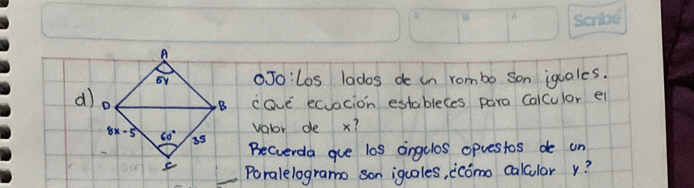 Scribe
A
5y
d) D
B
8x-5
60°
35
C
OJO: Los lados de un rombo son iguales.
¿Qué ecuación estableces para calcular el
valor de x?
Recuerda que los ángulos opuestos de un
Paralelogramo son iguales, ¿cómo calcular y?